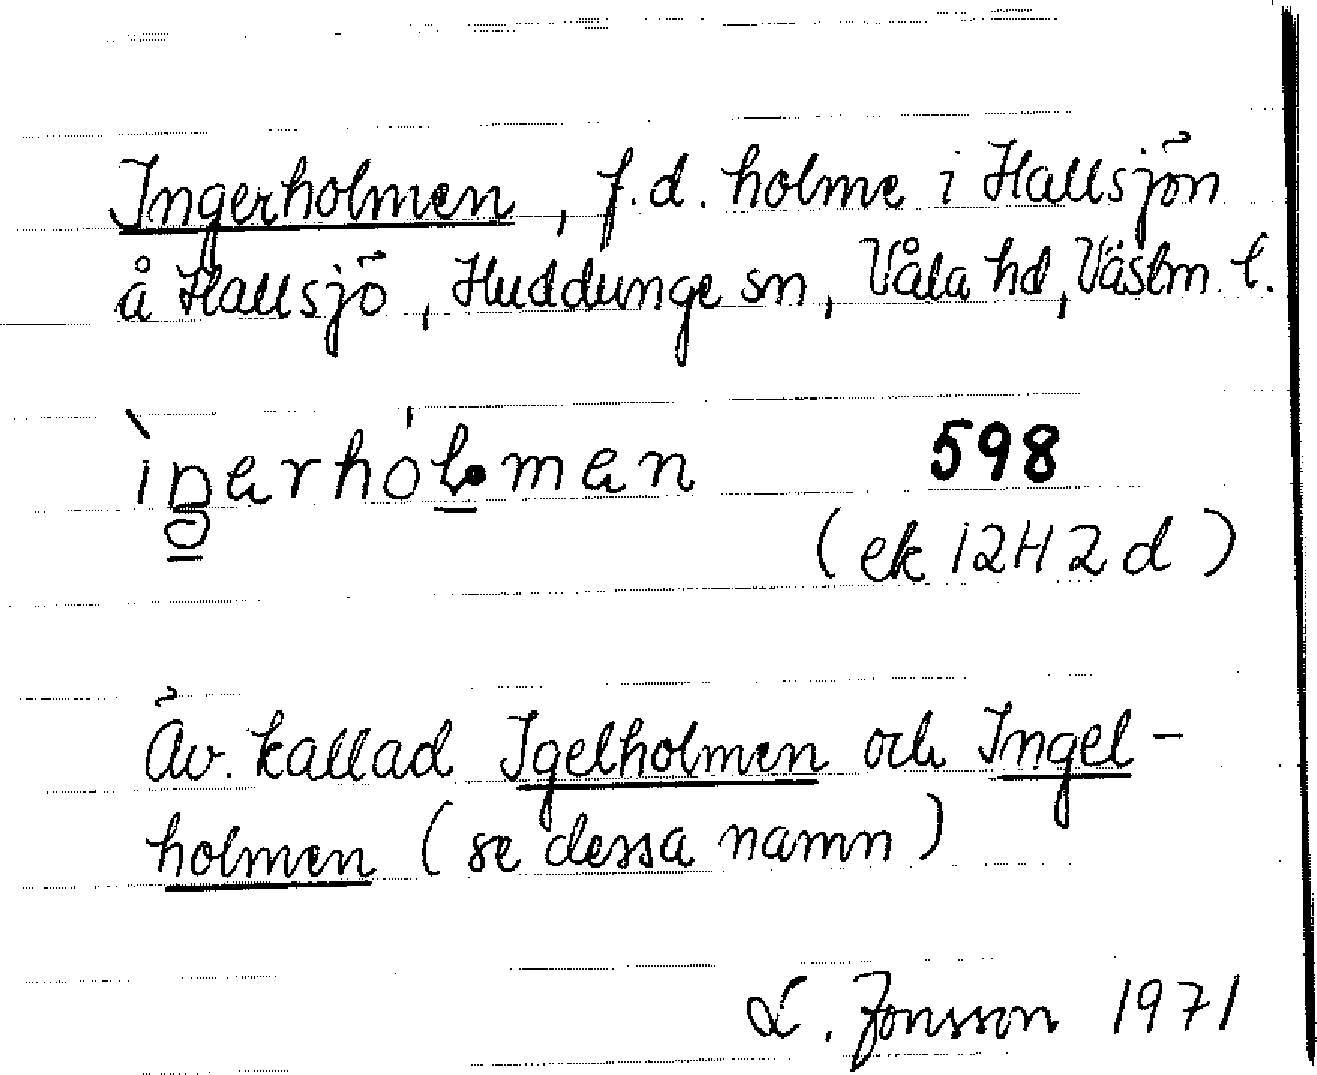 Ingerholmen, f.d. holme i Hallsjön
å Hallsjö, Huddunge sn, Våla hd, Västm l.
ìŋerhol̠men 598
(ek 12H2d)
Äv. kallad Igelholmen och Ingel-
holmen (se dessa namn)
L. Jonsson 1971